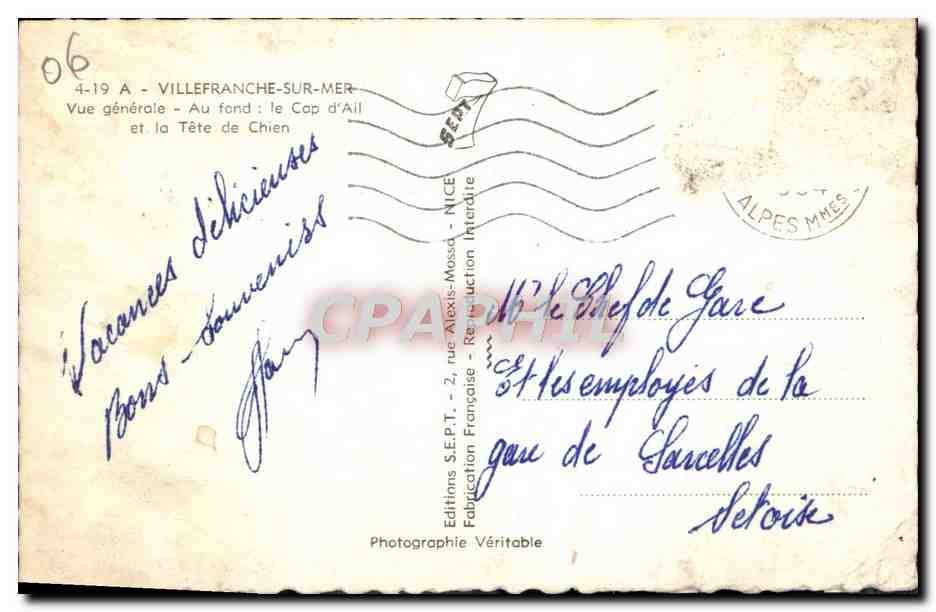 06
4-19 A - VILLEFRANCHE-SUR-MER
Vue générale - Au fond : le Cap d'Ail
et la Tête de Chien
Vacances délicieuses
Bons - Souvenirs
SEPT
Editions S.E.P.T. - 2, rue Alexis-Mossa - NICE
Fabrication Française - Reproduction Interdite
ALPES MMES
Mr le Chef de Gare
Et les employés de la
gare de Sarcelles
Set oise
CPAPHIL
Photographie Véritable